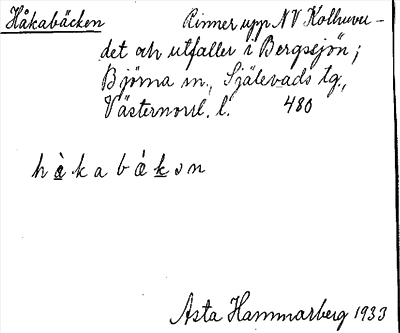 Håkabäcken Rinner upp NV Kolhuvu-
det och utfaller i Bergsjön;
Björna sn., Själevads tg.,
Västernorrl. l. 480
hàkabákən
Asta Hammarberg 1933